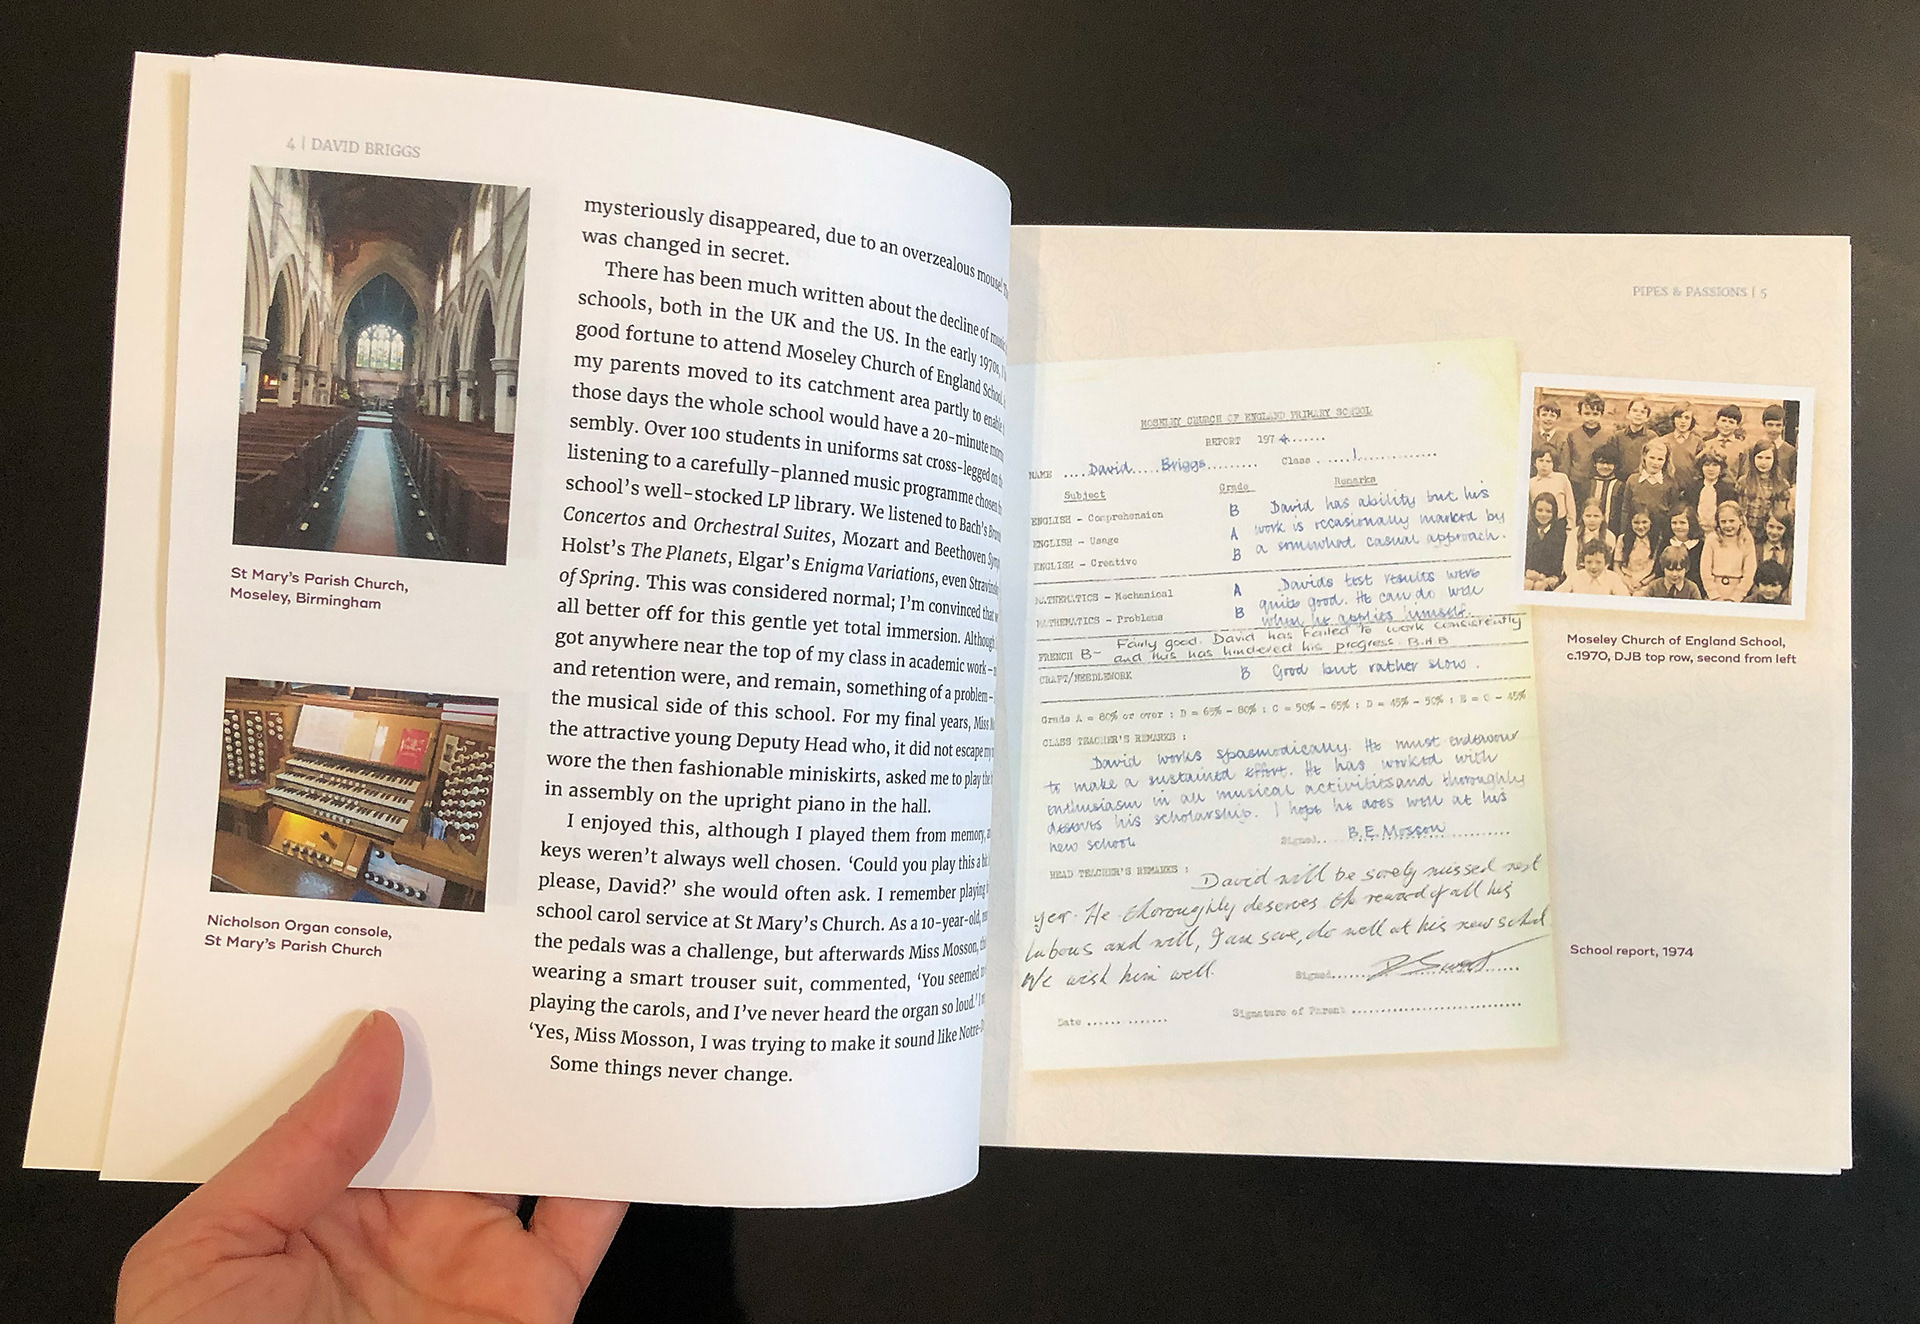 4 | DAVID BRIGGS
St Mary's Parish Church,
Moseley, Birmingham
Nicholson Organ console,
St Mary's Parish Church
mysteriously disappeared, due to an overzealous mouse!
was changed in secret.
There has been much written about the decline of
schools, both in the UK and the US. In the early 1970s,
good fortune to attend Moseley Church of England School,
my parents moved to its catchment area partly to enable
those days the whole school would have a 20-minute
sembly. Over 100 students in uniforms sat cross-legged on
listening to a carefully-planned music programme chosen
school's well-stocked LP library. We listened to Bach's
Concertos and Orchestral Suites, Mozart and Beethoven
Holst's The Planets, Elgar's Enigma Variations, even
of Spring. This was considered normal; I'm convinced that
all better off for this gentle yet total immersion. Although
got anywhere near the top of my class in academic work –
and retention were, and remain, something of a problem –
the musical side of this school. For my final years, Miss
the attractive young Deputy Head who, it did not escape
wore the then fashionable miniskirts, asked me to play the
in assembly on the upright piano in the hall.
I enjoyed this, although I played them from memory,
keys weren't always well chosen. 'Could you play this a bit
please, David?' she would often ask. I remember playing
school carol service at St Mary's Church. As a 10-year-old,
the pedals was a challenge, but afterwards Miss Mosson,
wearing a smart trouser suit, commented, 'You seemed
playing the carols, and I've never heard the organ so loud.'
'Yes, Miss Mosson, I was trying to make it sound like
Some things never change.
PIPES & PASSIONS | 5
MOSELEY CHURCH OF ENGLAND PRIMARY SCHOOL
REPORT 1974.......
NAME ....David.....Briggs......... Class .....1............
Subject Grade Remarks
ENGLISH - Comprehension B David has ability but his
ENGLISH - Usage A work is occasionally marked by
ENGLISH - Creative B a somewhat casual approach.
MATHEMATICS - Mechanical A Davids test results were
quite good. He can do well
MATHEMATICS - Problems B when he applies himself.
FRENCH B- Fairly good. David has failed to work consistently
and this has hindered his progress. B.H.B
CRAFT/NEEDLEWORK B Good but rather slow.
Grade A = 80% or over : B = 65% - 80% : C = 50% - 65% : D = 45% - 50% : E = 0 - 45%
CLASS TEACHER'S REMARKS :
David works spasmodically. He must endeavour
to make a sustained effort. He has worked with
enthusiasm in all musical activities and thoroughly
deserves his scholarship. I hope he does well at his
new school. Signed...B.E.Mosson..........
HEAD TEACHER'S REMARKS :
David will be sorely missed next
year. He thoroughly deserves the reward of all his
labours and will, I am sure, do well at his new school
We wish him well. Signed.....
Date .............. Signature of Parent ........................
Moseley Church of England School,
c.1970, DJB top row, second from left
School report, 1974